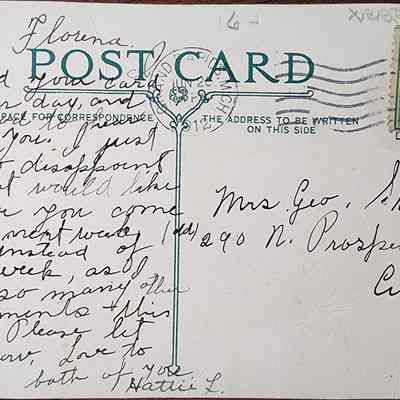 Florena
POST CARD
GRAND RAPIDS, MICH
JUN
1912
d your card
day, and
to
you. I just
disappoint
t would like
you come
next week
instead of
week, as I
so many other
ments + this
Please let
Love to
both of you
Hattie L.
PACE FOR CORRESPONDENCE
THE ADDRESS TO BE WRITTEN
ON THIS SIDE
Mrs. Geo.
290 N. Prospe